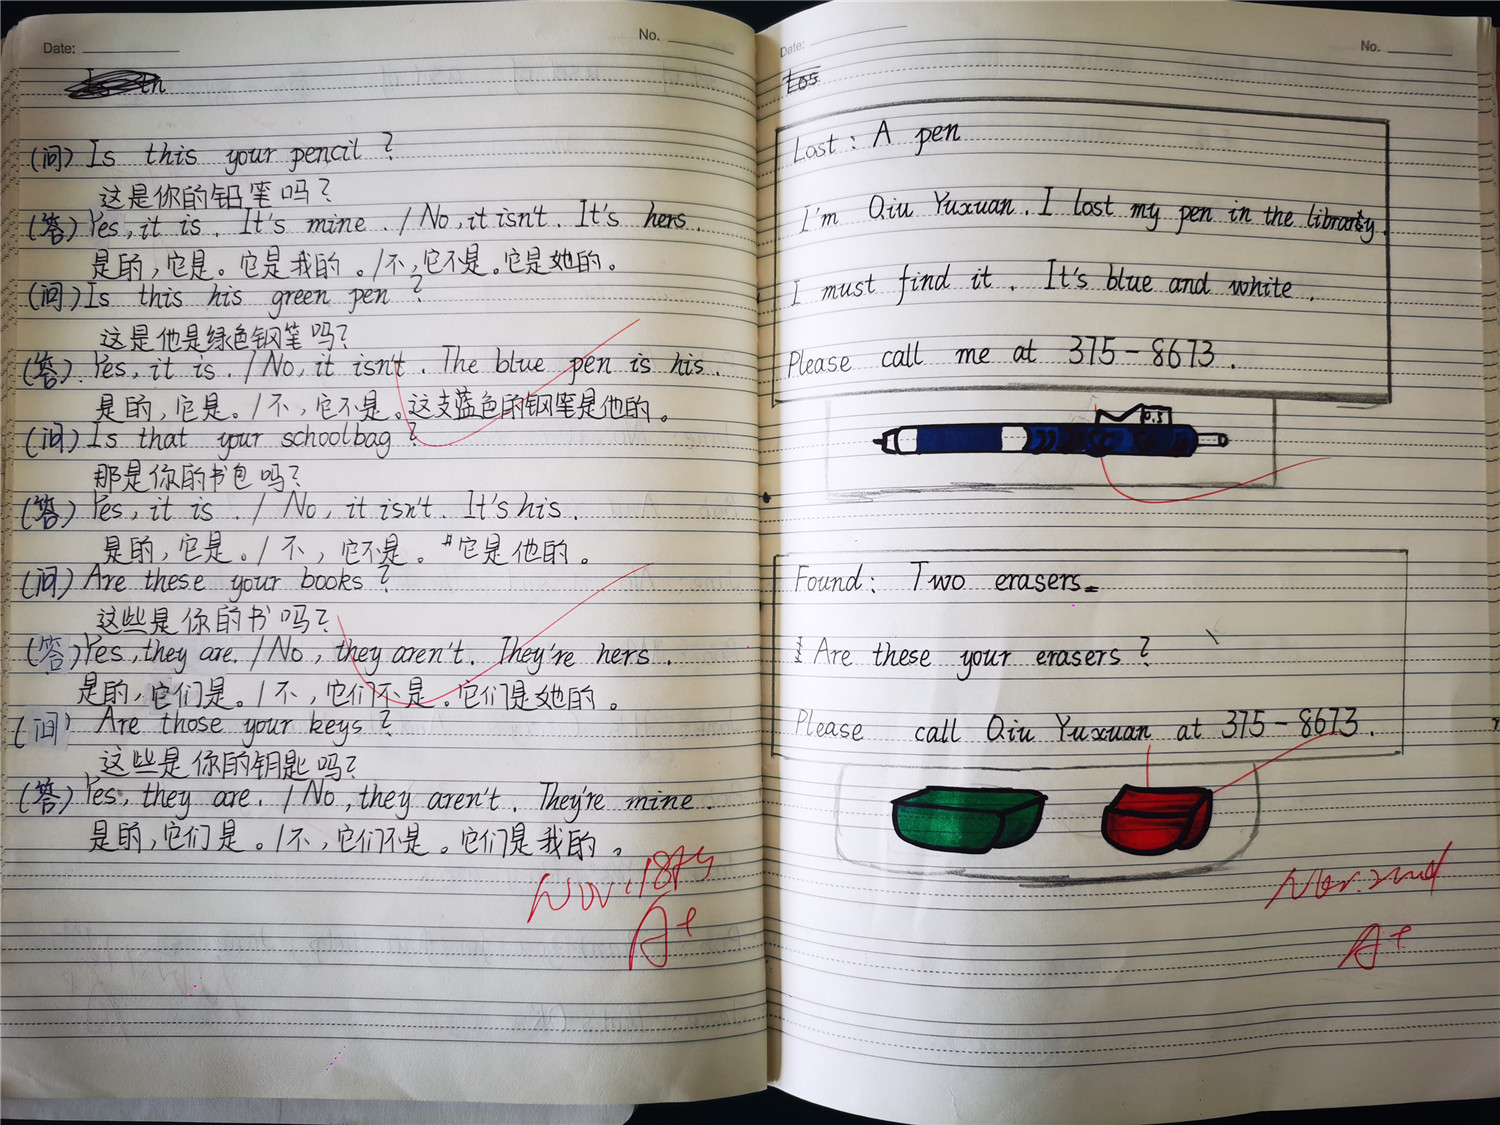 Date:
No.
(问) Is this your pencil ?
这是你的铅笔吗？
(答) Yes, it is. It's mine. / No, it isn't. It's hers.
是的，它是。它是我的。/不，它不是。它是她的。
(问) Is this his green pen ?
这是他是绿色钢笔吗？
(答). Yes, it is. / No, it isn't. The blue pen is his.
是的，它是。/不，它不是。这支蓝色的钢笔是他的。
(问) Is that your schoolbag ?
那是你的书包吗？
(答) Yes, it is. / No, it isn't. It's his.
是的，它是。/不，它不是。它是他的。
(问) Are these your books ?
这些是你的书吗？
(答) Yes, they are. / No, they aren't. They're hers.
是的，它们是。/不，它们不是。它们是她的。
(问) Are those your keys ?
这些是你的钥匙吗？
(答) Yes, they are. / No, they aren't. They're mine.
是的，它们是。/不，它们不是。它们是我的。
Nov. 18th
A+
Date:
No.
Los
Lost : A pen
I'm Qiu Yuxuan. I lost my pen in the library.
I must find it. It's blue and white.
Please call me at 375-8673.
0.5
Found: Two erasers.
Are these your erasers ?
Please call Qiu Yuxuan at 375-8673.
A+